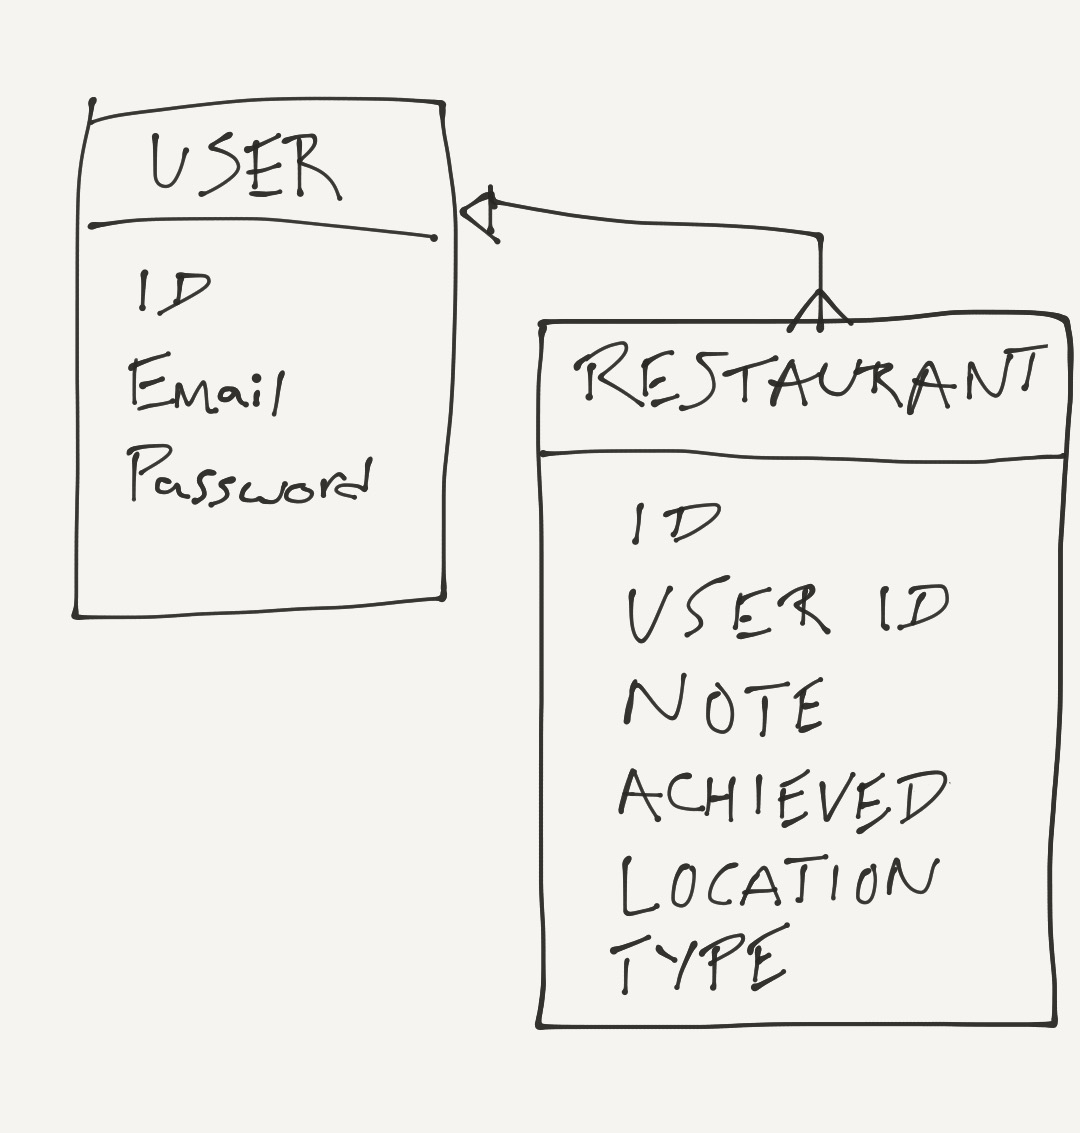 USER
ID
Email
Password
RESTAURANT
ID
USER ID
NOTE
ACHIEVED
LOCATION
TYPE